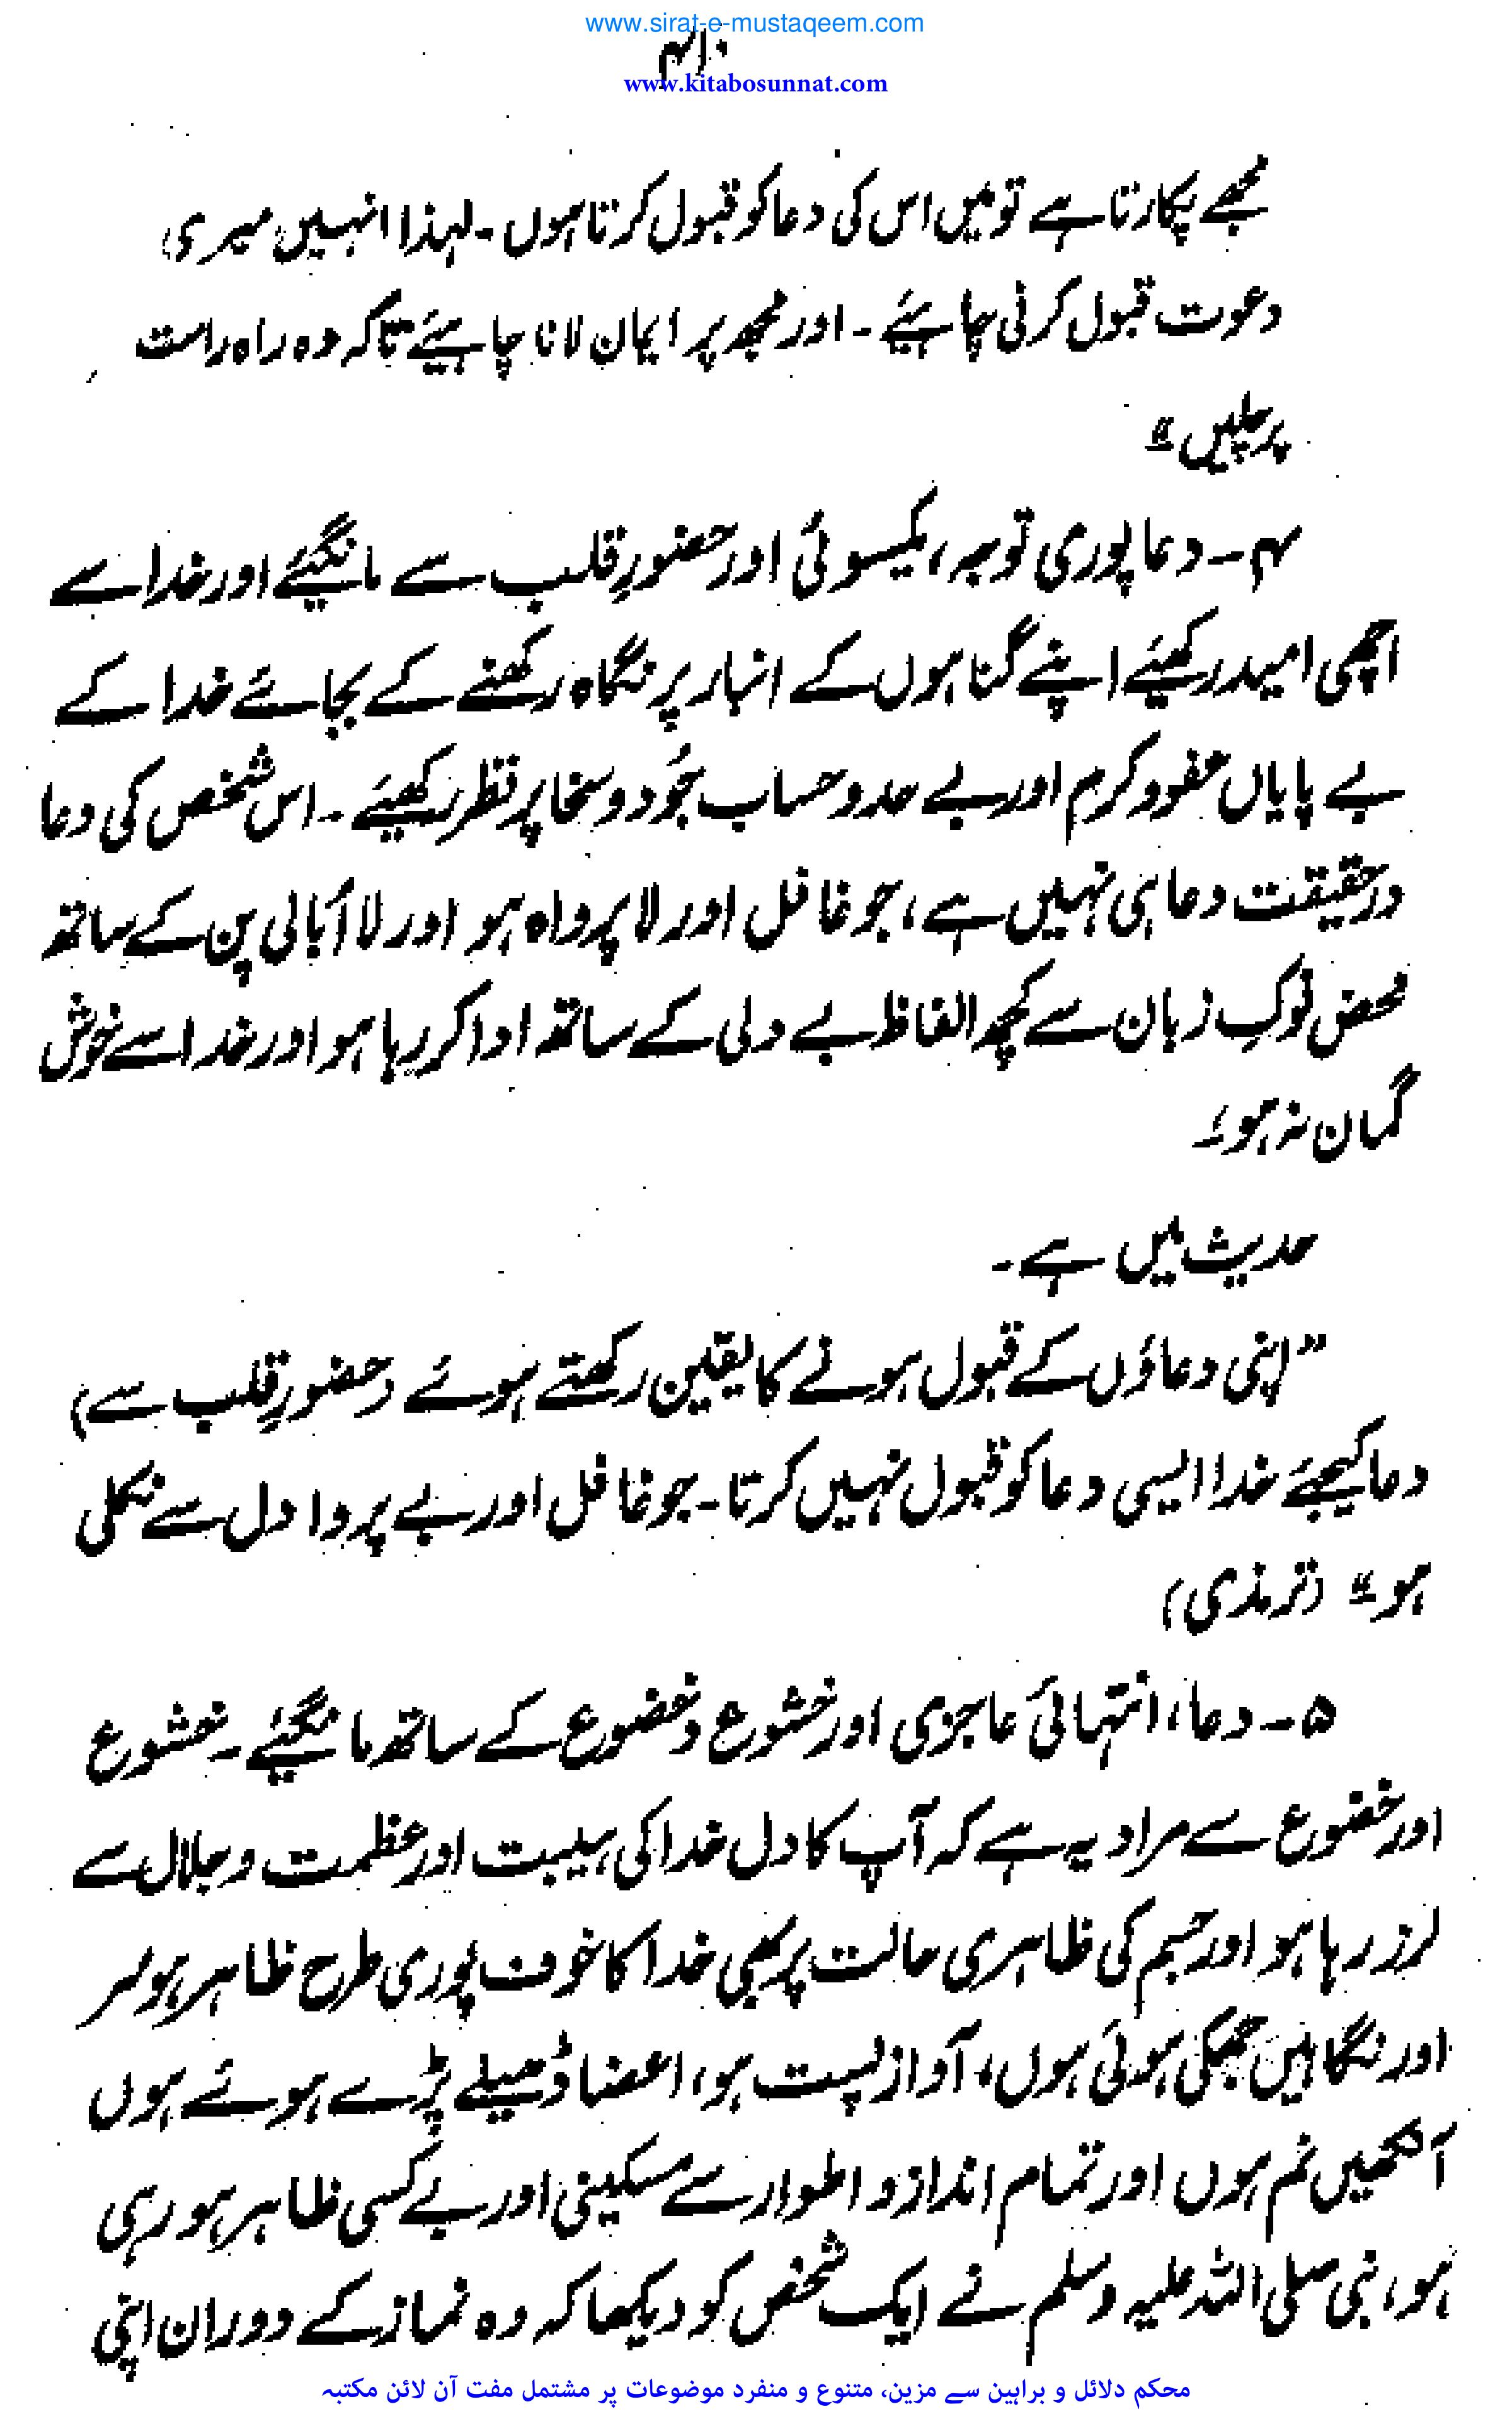 www.sirat-e-mustaqeem.com
۴۱۰
www.kitabosunnat.com
مجھے پکارتا ہے تو میں اس کی دعا کو قبول کرتا ہوں۔ لہذا انہیں میری
دعوت قبول کرنی چاہیئے۔ اور مجھ پر ایمان لانا چاہیئے تاکہ وہ راہ راست
پر چلیں"
۴۔ دعا پوری توجہ، یکسوئی اور حضورِ قلب سے مانگیئے اور خدا سے
اچھی امید رکھیئے اپنے گناہوں کے انبار پر نگاہ رکھنے کے بجائے خدا کے
بے پایاں عفو و کرم اور بے حد و حساب جُود و سخا پر نظر رکھیئے۔ اس شخص کی دعا
درحقیقت دعا ہی نہیں ہے، جو غافل اور لا پرواہ ہو اور لا اُبالی پن کے ساتھ
محض نوکِ زبان سے کچھ الفاظ بے دلی کے ساتھ ادا کر رہا ہو اور خدا سے خوش
گمان نہ ہو۔
حدیث میں ہے۔
"اپنی دعاؤں کے قبول ہونے کا یقین رکھتے ہوئے (حضورِ قلب سے)
دعا کیجئے خدا ایسی دعا کو قبول نہیں کرتا۔ جو غافل اور بے پروا دل سے نکلی
ہو" (ترمذی)
۵۔ دعا، انتہائی عاجزی اور خشوع و خضوع کے ساتھ مانگیئے۔ خشوع
اور خضوع سے مراد یہ ہے کہ آپ کا دل خدا کی ہیبت اور عظمت و جلال سے
لرز رہا ہو اور جسم کی ظاہری حالت پر بھی خدا کا خوف پوری طرح ظاہر ہو سر
اور نگاہیں جھکی ہوئی ہوں، آواز پست ہو، اعضا ڈھیلے پڑے ہوئے ہوں
آنکھیں نم ہوں اور تمام انداز و اطوار سے مسکینی اور بے کسی ظاہر ہو رہی
ہو، نبی صلی اللہ علیہ وسلم نے ایک شخص کو دیکھا کہ وہ نماز کے دوران اپنی
محکم دلائل و براہین سے مزین، متنوع و منفرد موضوعات پر مشتمل مفت آن لائن مکتبہ